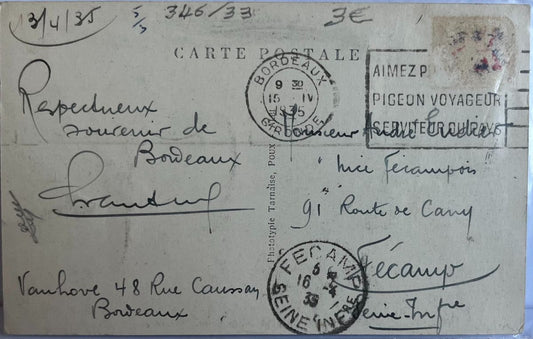 3/4/35
346/33
3€
CARTE POSTALE
BORDEAUX
9 30
15 IV
1935
GIRONDE
AIMEZ
PIGEON VOYAGEUR
SERVITEUR DU PAYS
Respectueux
souvenir de
Bordeaux
Vanhove 48 Rue Caussan
Bordeaux
Phototypie Tarnaise, Poux
Monsieur André
Nice Fécampois
91 Route de Cany
Fécamp
Seine-Infre
FECAMP
16 -4
35
SEINE INFRE